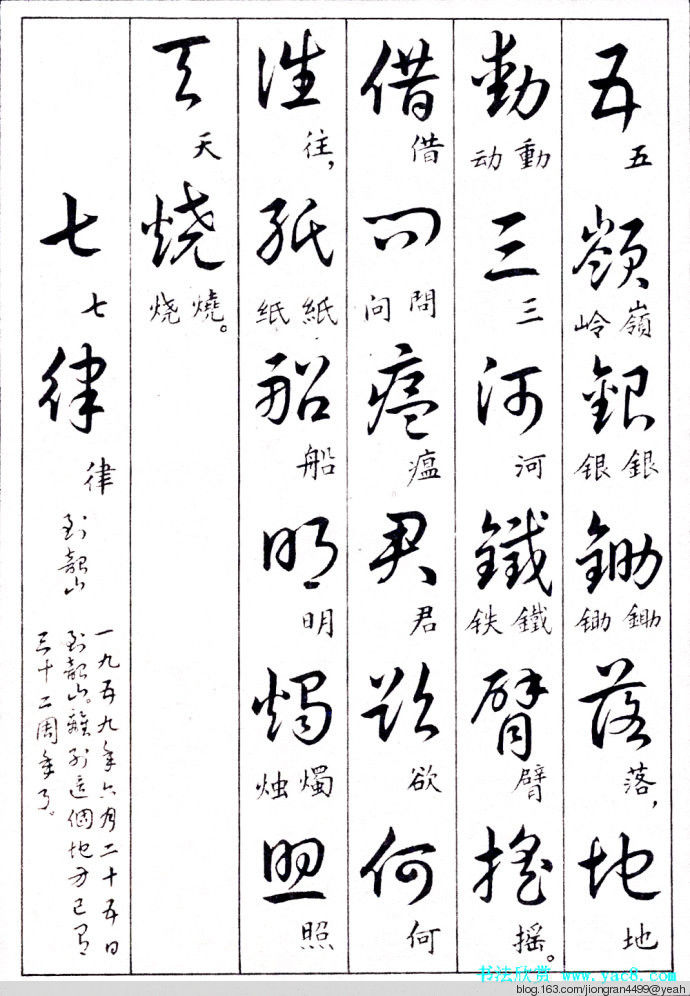 五 五 嶺 嶺 岭 銀 銀 银 鋤 鋤 锄 落 落，地 地
動 動 动 三 三 河 河 鐵 鐵 铁 臂 臂 摇 摇。
借 借 問 問 问 瘟 瘟 君 君 欲 欲 何 何
往 往，紙 紙 纸 船 船 明 明 燭 燭 烛 照 照
天 天 燒 燒 烧。
七 七 律 律 到韶山
一九五九年六月二十五日
到韶山。離别這個地方已有
三十二周年了。
书法欣赏 www.yac8.com
blog.163.com/jiongran4499@yeah